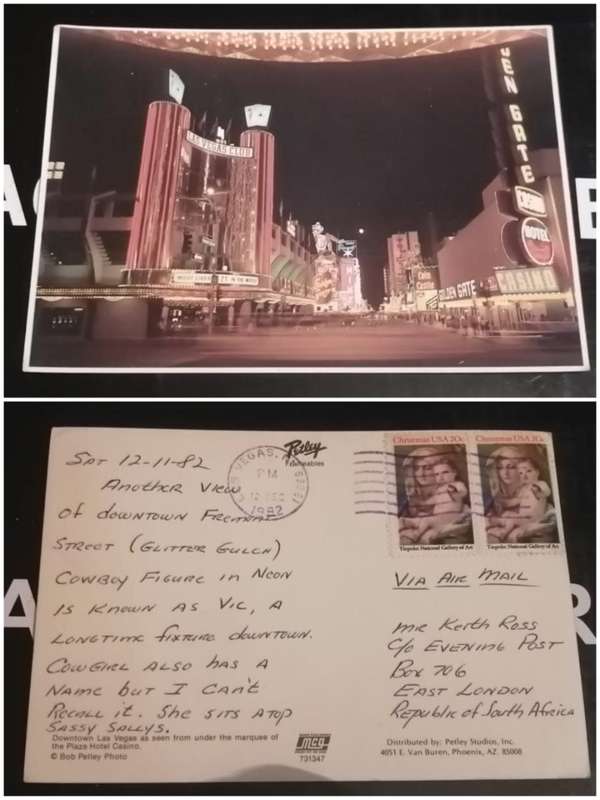 LAS VEGAS CLUB
DEN GATE
CASINO
HOTEL
Coin
Castle
GOLDEN GATE
CASINO
SAT 12-11-82
ANOTHER VIEW
OF DOWNTOWN FREMONT
STREET (GLITTER GULCH)
COWBOY FIGURE IN NEON
IS KNOWN AS VIC, A
LONGTIME FIXTURE DOWNTOWN.
COWGIRL ALSO HAS A
NAME BUT I CAN'T
RECALL IT. SHE SITS ATOP
SASSY SALLYS.
Downtown Las Vegas as seen from under the marquee of
the Plaza Hotel Casino.
© Bob Petley Photo
VEGAS,
PM
12 DEC
1982
Petley
Christmas USA 20c Christmas USA 20c
Tiepolo: National Gallery of Art Tiepolo: National Gallery of Art
VIA AIR MAIL
MR Keith Ross
C/o EVENING POST
Box 706
EAST LONDON
Republic of South Africa
MCG
731347
Distributed by: Petley Studios, Inc.
4051 E. Van Buren, Phoenix, AZ. 85008